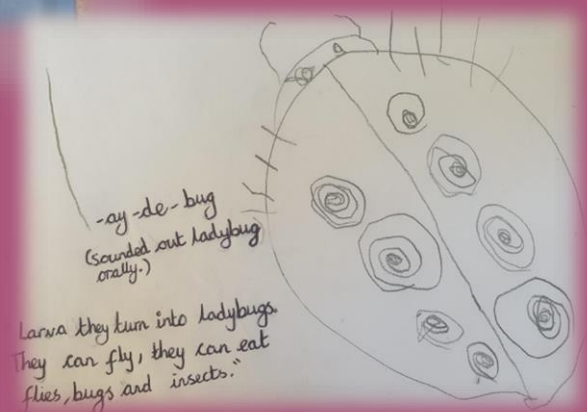 -ay-de-bug
(sounded out ladybug
orally.)
Larva they turn into ladybugs.
They can fly, they can eat
flies, bugs and insects."